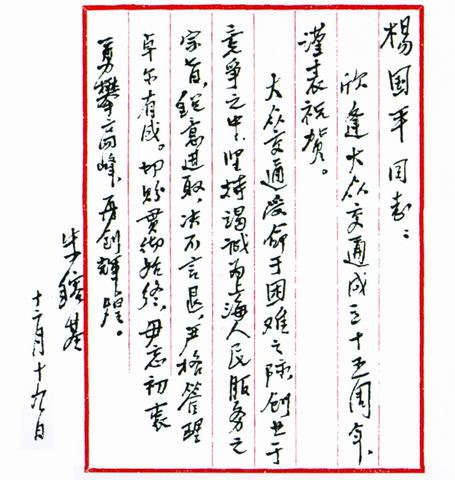 杨国平同志：
欣逢大众交通成立十五周年，
谨表祝贺。
大众交通受命于困难之际，创业于
竞争之中，坚持竭诚为上海人民服务之
宗旨，锐意进取，决不言退，严格管理
卓尔有成。切盼贯彻始终，毋忘初衷
勇攀高峰，再创辉煌。
朱镕基
十二月十九日